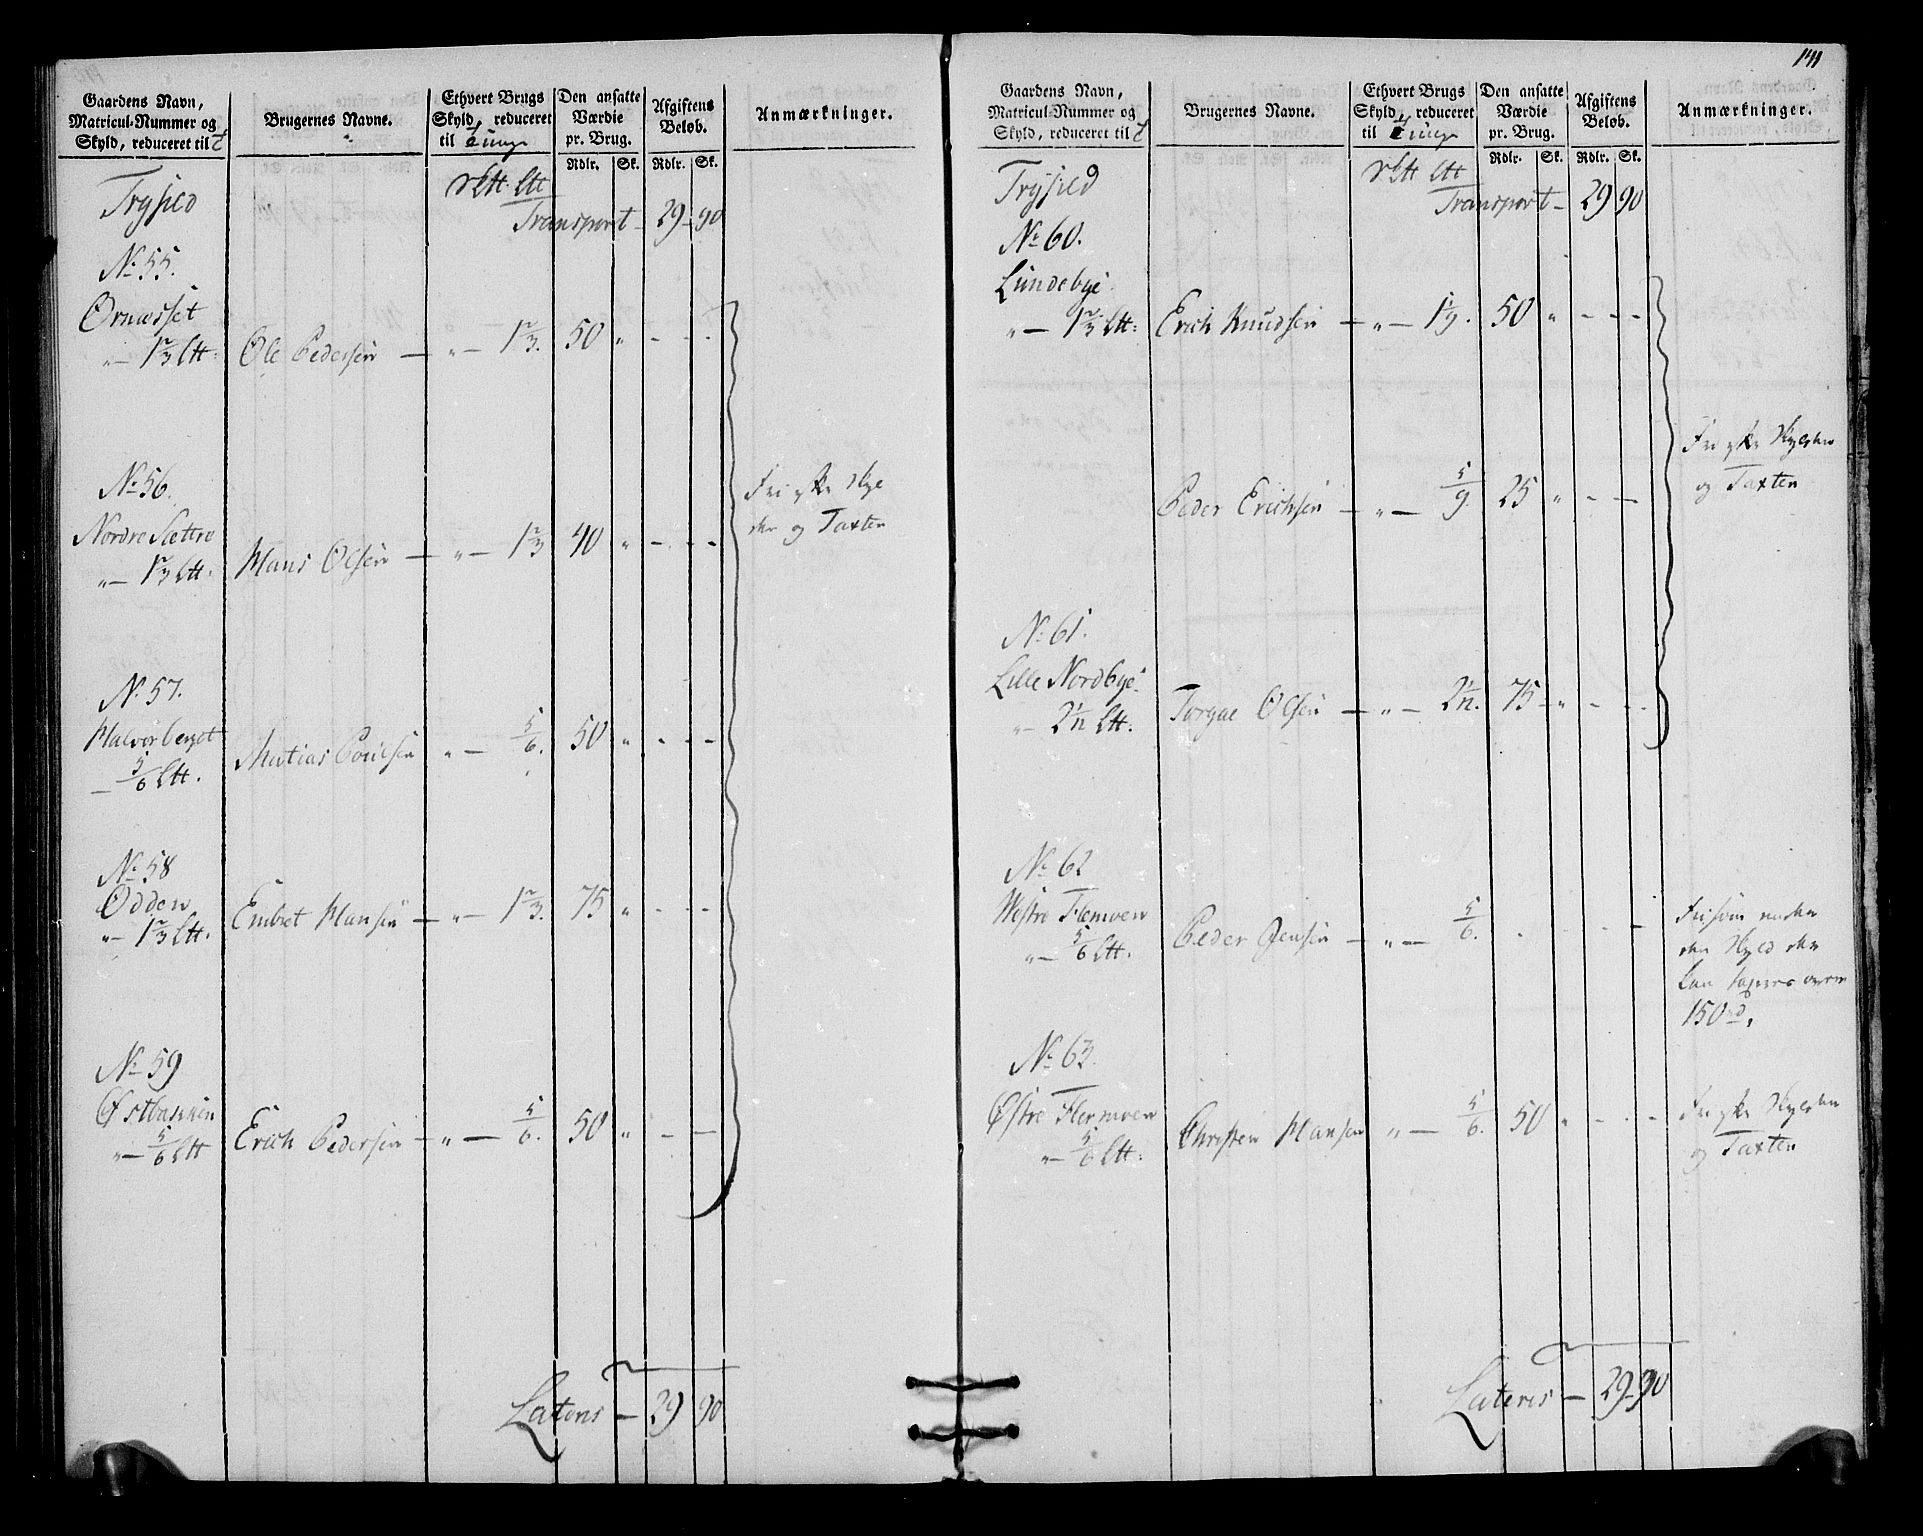 Gaardens Navn,
Matricul-Nummer og
Skyld, reduceret til
Brugernes Navne.
Ethvert Brugs
Skyld, reduceret
til Tunge
Den ansatte
Værdie
pr. Brug.
Rdlr. Sk.
Afgiftens
Beløb.
Rdlr. Sk.
Anmærkninger.
Trysild
Transport - 29 - 90
No 55.
Ornæsset
" — 1 2/3 Ltt: Ole Pedersen — " — 1 2/3. 50 " - - -
No 56.
Nordre Sættre
" — 1 2/3 Ltt. Hans Olsen — " — 1 2/3 40 " - - -
Fri efter Skyl
den og Taxten
No 57.
Halvorberget
— 5/6 Ltt. Matias Poulsen " — 5/6. 50 " - - -
No 58
Odden
" — 1 2/3 Ltt. Embret Hansen — " — 1 2/3. 75 " - - -
No 59
Østbakken
" — 5/6 Ltt Erich Pedersen — " — 5/6. 50 " - —
Lateris — 29 90
141
Gaardens Navn,
Matricul-Nummer og
Skyld, reduceret til
Brugernes Navne.
Ethvert Brugs
Skyld, reduceret
til Tunge
Den ansatte
Værdie
pr. Brug.
Rdlr. Sk.
Afgiftens
Beløb.
Rdlr. Sk.
Anmærkninger.
Trysild
Transport - 29 90
No 60.
Lundebye
" — 1 2/3 Ltt: Erich Knudsen — " — 1 1/9. 50 " - - -
Peder Erichsen — " — 5/9. 25 " - —
Fri efter Skylden
og Taxten
No 61.
Lille Nordbye
" — 2 1/2 Ltt. Torgal Olsen — " — 2 1/2. 75 - " - - -
No 62
Westre Flermoen
" — 5/6 Ltt. Peder Jensen — " — 5/6.
Fri som under
den Skyld der
kan taxeres over
150 rd.
No 63.
Østre Flermoen
" — 5/6 Ltt. Christen Hansen " — 5/6. 50 " - - -
Fri efter Skylden
og Taxten
Lateris — 29 - 90